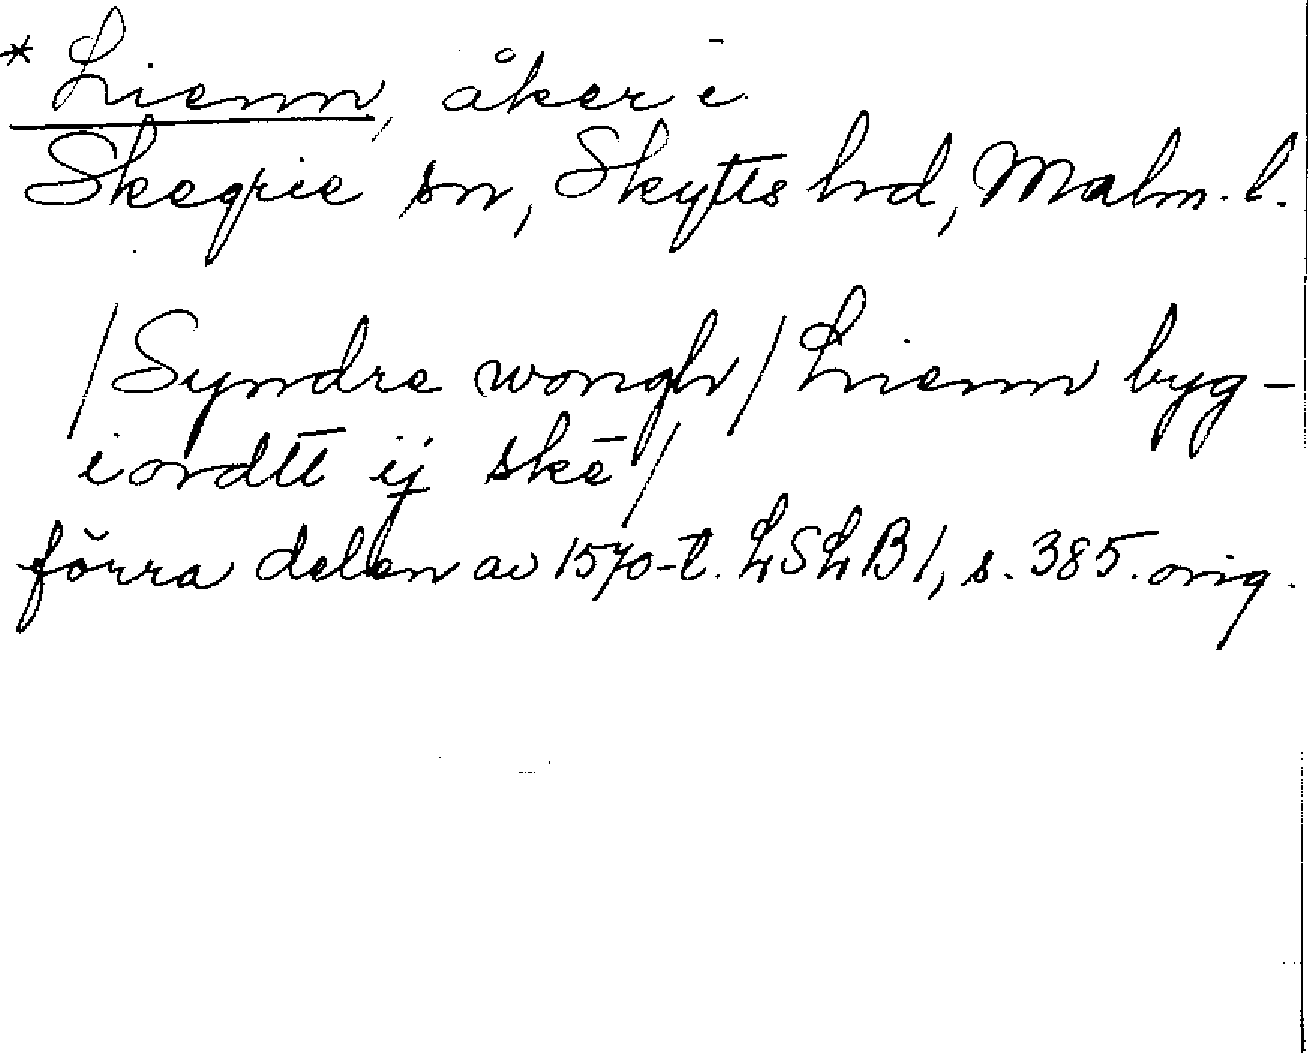 * Lienn, åker i
Skegrie sn, Skytts hd, Malm. l.
/Syndre wongh/ Lienn byg-
iordtt ij skē/
förra delen av 1570-t. LSLB 1, s. 385. orig.